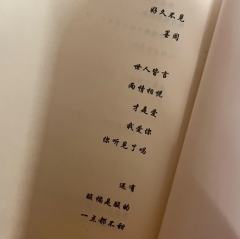 好久不见
墨园
世人皆言
两情相悦
才是爱
我爱你
你听见了吗
还有
酸橘是酸的
一点都不甜